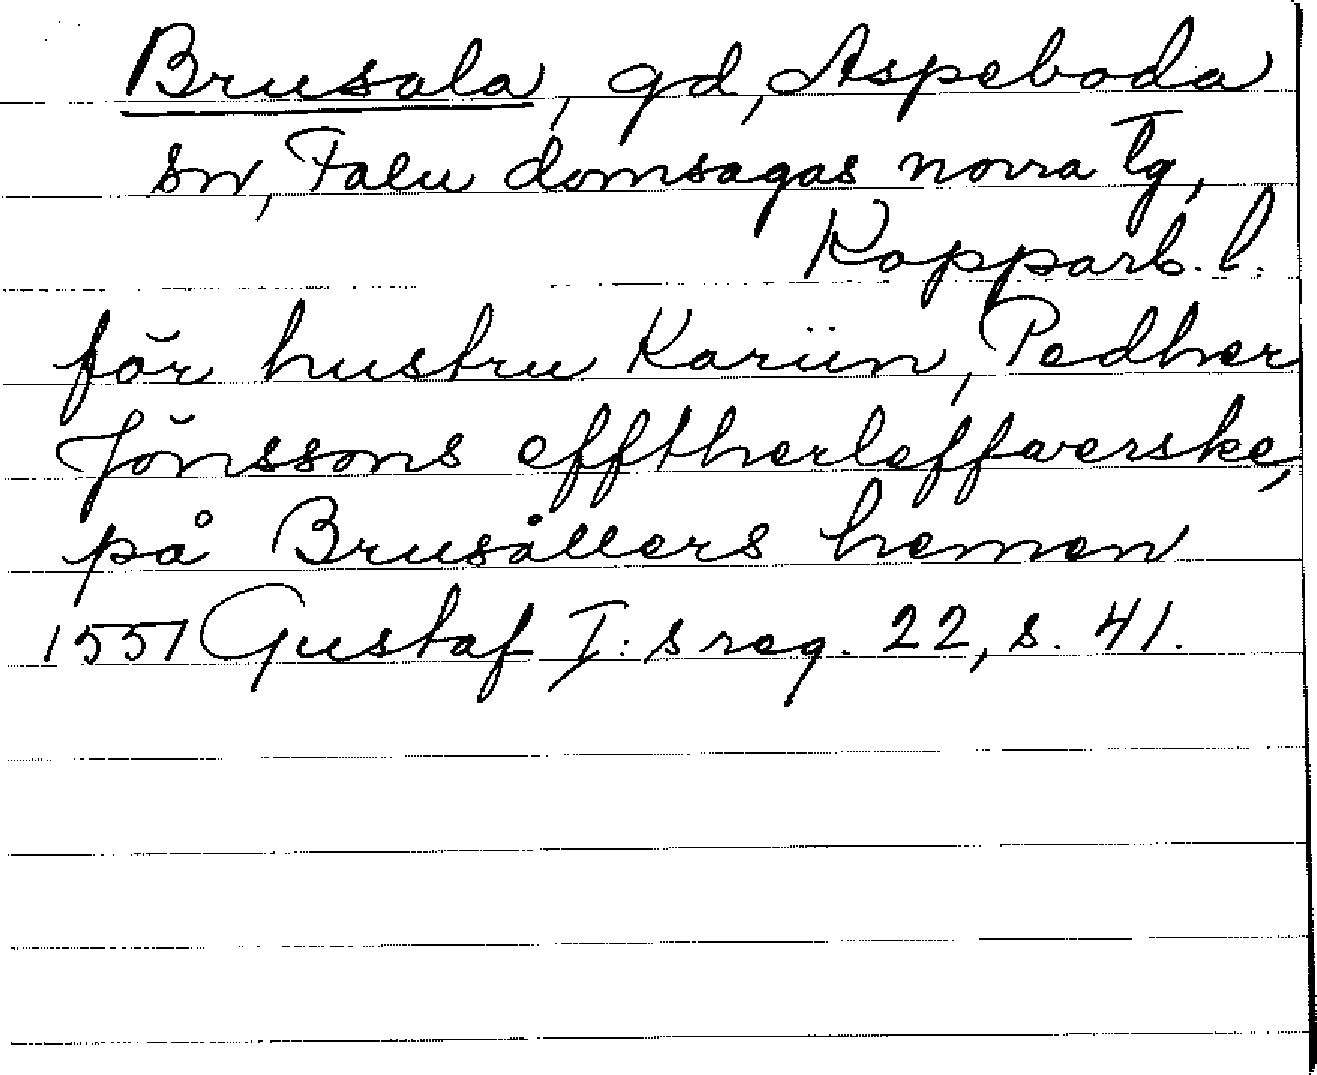 Brusala, gd, Aspeboda
sn, Falu domsagas norra tg,
Kopparb. l.
för hustru Kariin, Pedher
Jönssons efftherleffverske,
på Brusållers hemen
1551 Gustaf I:s reg. 22, s. 41.